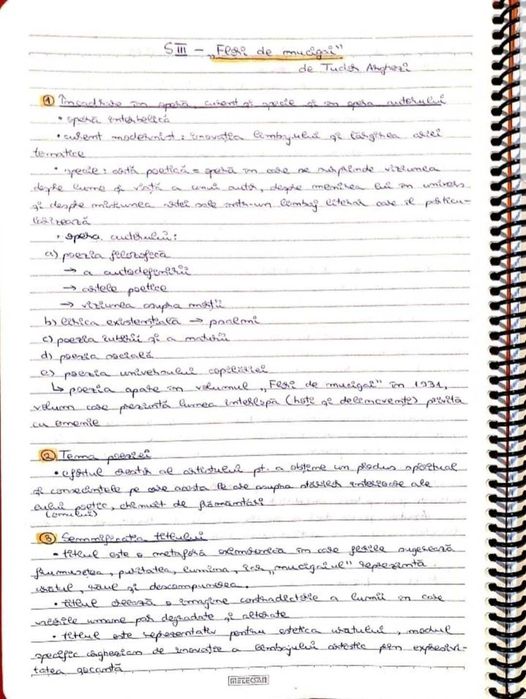 S III – „Flori de mucigai"
de Tudor Arghezi
1 Încadrare în operă, curent și specie și în opera autorului
• operă interbelică
• curent modernist: inovația limbajului și lărgirea ariei
tematice
• specie: artă poetică = operă în care se surprinde viziunea
despre lume și viață a unui autor, despre menirea lui în univers
și despre misiunea artei sale într-un limbaj literar care îl particu-
larizează
• opera autorului:
a) poezia filozofică
→ a autodefinirii
→ artele poetice
→ viziunea asupra morții
b) lirica existențială → psalmi
c) poezia iubirii și a naturii
d) poezia socială
e) poezia universului copilăriei
↳ poezia apare în volumul „Flori de mucigai" în 1931,
volum care prezintă lumea interlopă (hoți și delincvenți) privită
cu omenie
2 Tema poeziei
• efortul creator al artistului pt. a obține un produs spiritual
și consecințele pe care acesta le are asupra stărilor interioare ale
eului poetic, chinuit de frământări
(omului)
3 Semnificația titlului
• titlul este o metaforă oximoronică în care florile sugerează
frumusețea, puritatea, lumina, iar „mucigaiul" reprezintă
urâtul, răul și descompunerea.
• titlul creează o imagine contradictorie a lumii în care
valorile umane par degradate și alterate
• titlul este reprezentativ pentru estetica urâtului, modul
specific arghezian de inovație a limbajului artistic prin expresivi-
tatea șocantă